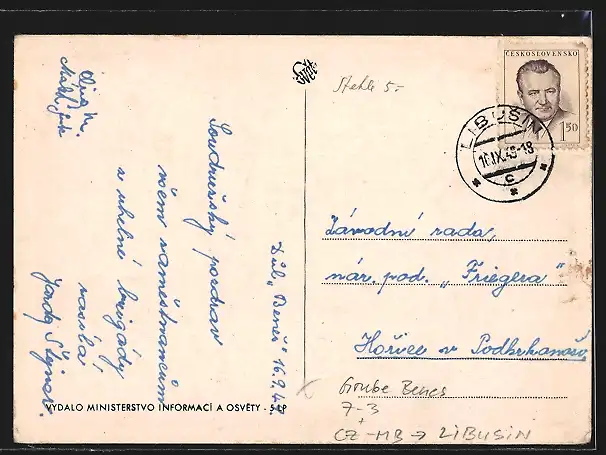 Důl „Beneš“ 16.9.48.
Soudružský pozdrav
všem zaměstnancům
z uhelné brigády
zasílá
Jarda
VYDALO MINISTERSTVO INFORMACÍ A OSVĚTY - 5 LP
Stehle 5.-
ČESKOSLOVENSKO
1.50
LIBUŠÍN
16.IX.48-18
c
Závodní rada,
nár. pod. „Friegera“
Hořice v Podkrkonoší
Grube Benes
7-3
+
CZ-MB → LIBUSIN